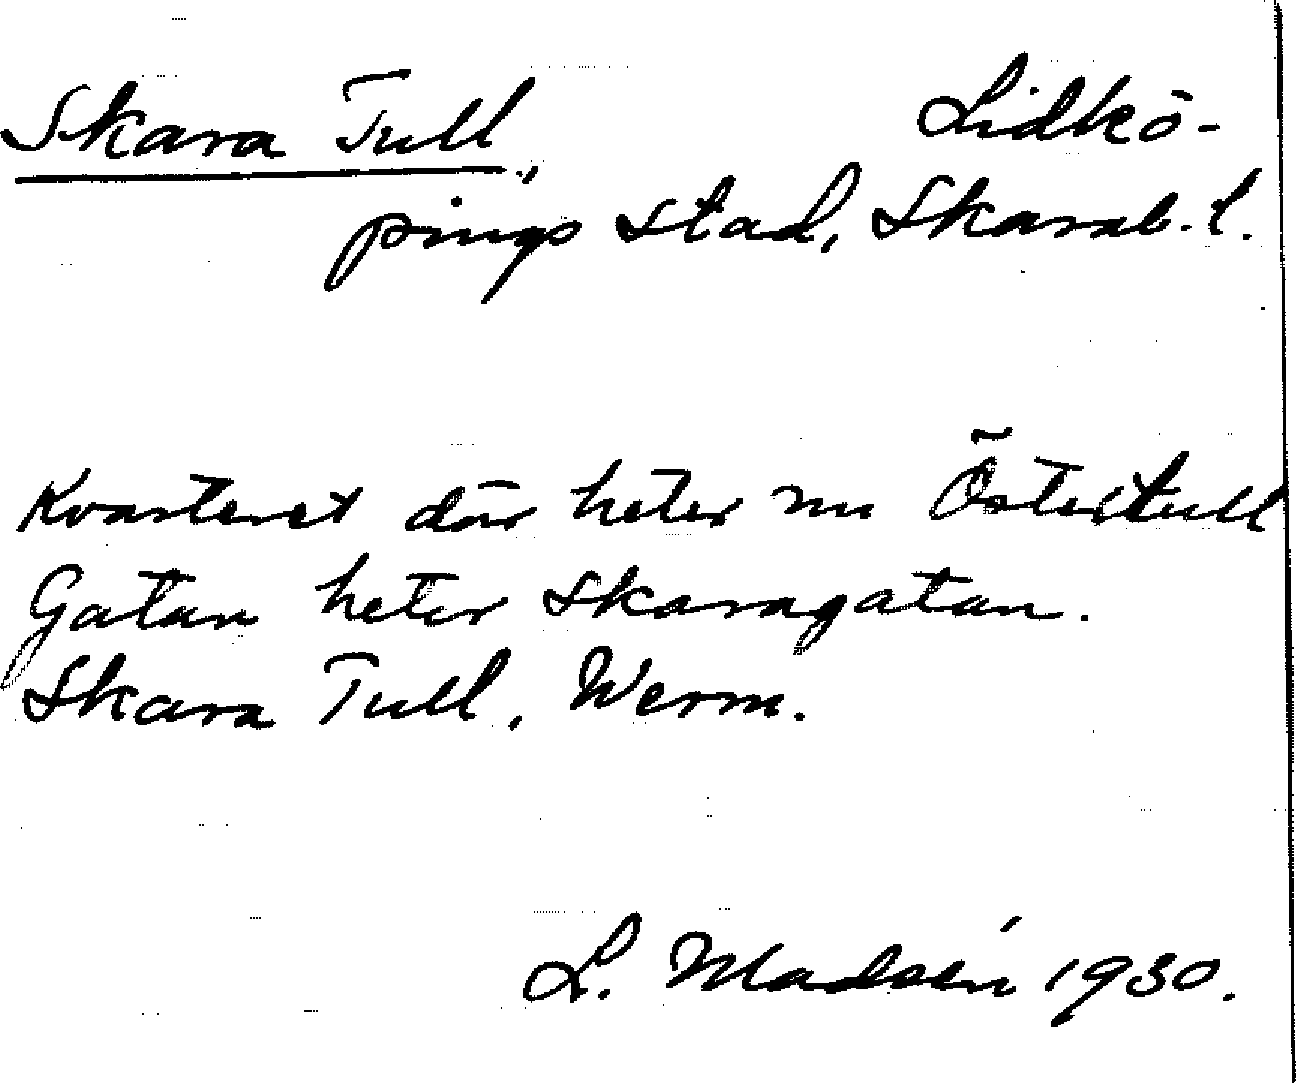 Skara Tull, Lidkö-
pings stad, Skarab. l.
Kvarteret där heter nu Östertull
Gatan heter Skaragatan.
Skara Tull, Werm.
L. Madsén 1930.